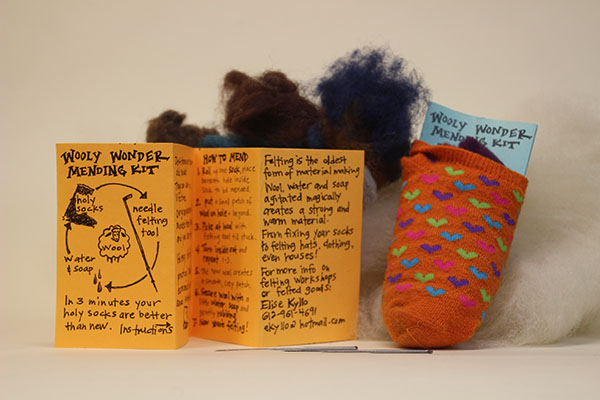 WOOLY WONDER
MENDING KIT
holy
socks
needle
felting
tool
Wool
water
& soap
In 3 minutes your
holy socks are better
than new. Instructions
HOW TO MEND
1. Roll up one sock, place
2. put a small patch of
wool on hole + beyond.
3. Poke at wool with
felting tool till stuck.
4. Turn inside out and
repeat 1-3.
5. The wool creates a
6. Secure wool with a
little water, soap and
gently rubbing
Felting is the oldest
form of material making
Wool, water and soap
agitated magically
creates a strong and
warm material.
From fixing your socks
to felting hats, clothing,
even houses!
For more info on
felting workshops
or felted goods:
Elise Kyllo
612-961-4691
ekyllo@hotmail.com
WOOLY WONDER
MENDING KIT